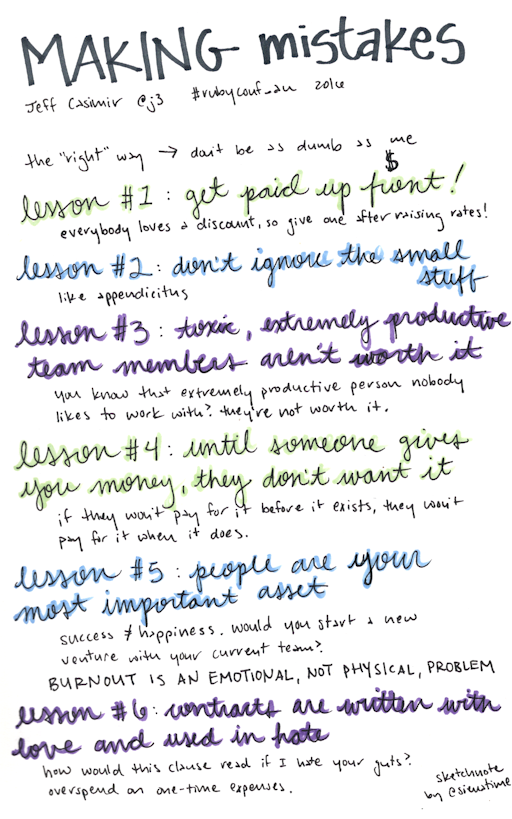 MAKING mistakes
Jeff Casimir @j3 #rubyconf_au 2016
the "right" way → don't be as dumb as me
$
lesson #1: get paid up front!
everybody loves a discount, so give one after raising rates!
lesson #2: don't ignore the small
stuff
like appendicitus
lesson #3: toxic, extremely productive
team members aren't worth it
you know that extremely productive person nobody
likes to work with? they're not worth it.
lesson #4: until someone gives
you money, they don't want it
if they won't pay for it before it exists, they won't
pay for it when it does.
lesson #5: people are your
most important asset
success ≠ happiness. would you start a new
venture with your current team?
BURNOUT IS AN EMOTIONAL, NOT PHYSICAL, PROBLEM
lesson #6: contracts are written with
love and used in hate
how would this clause read if I hate your guts?
overspend on one-time expenses.
sketchnote
by @siewtime